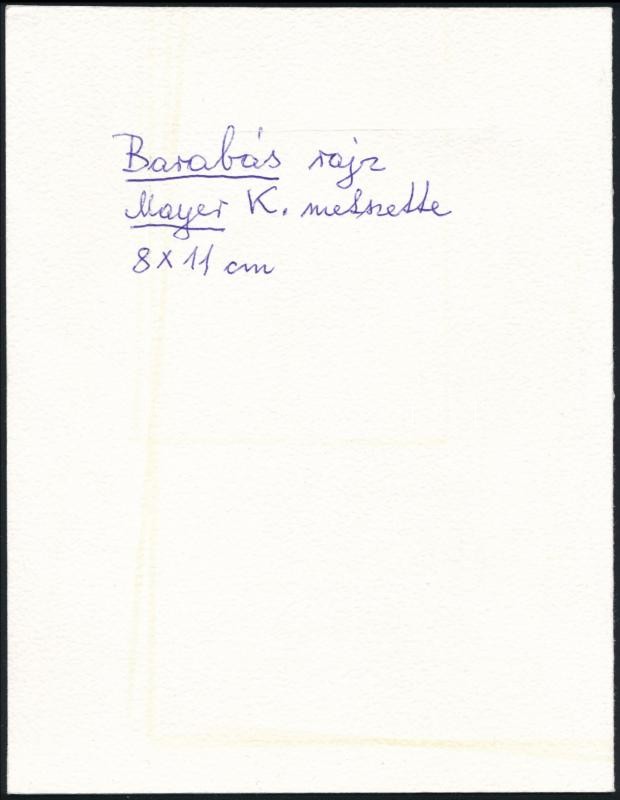 Barabás rajz
Mayer K. metszette
8 x 11 cm